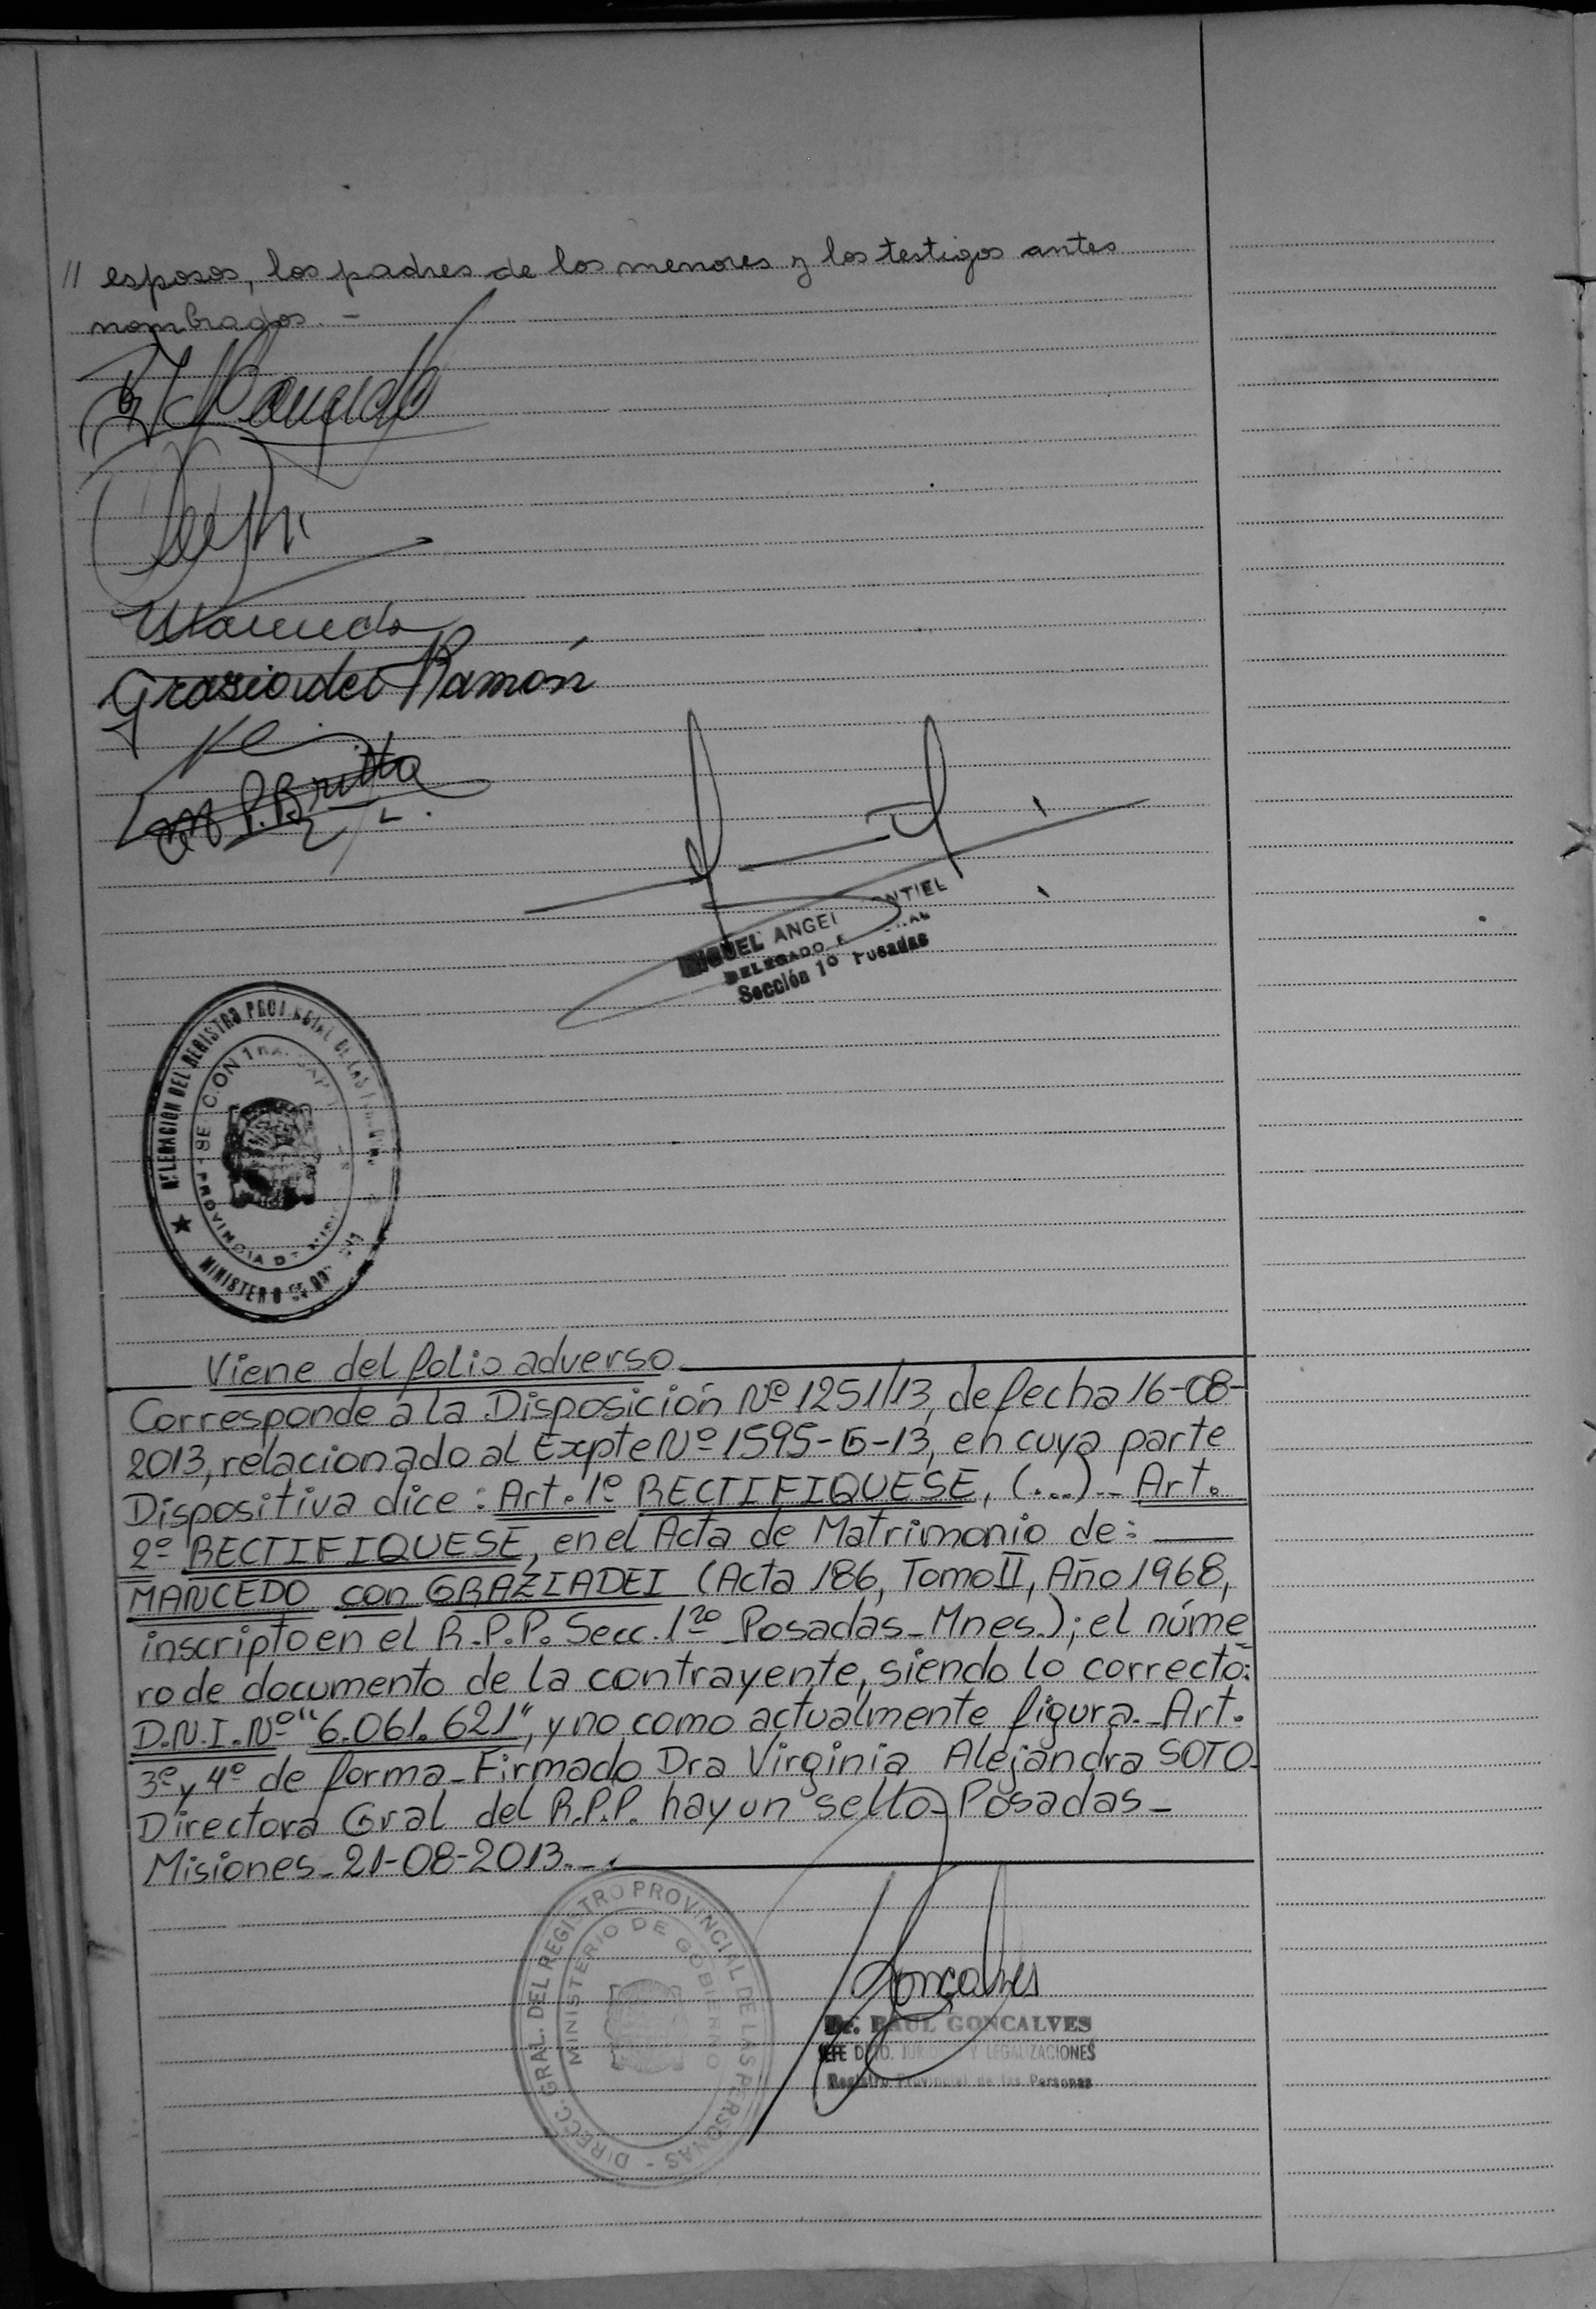 // esposos, los padres de los menores y los testigos antes
nombrados. -
Graziadei Ramón
Britto
MIGUEL ANGEL NTIEL
DELEGADO
Sección 1º Posadas
DELEGACION DEL REGISTRO PROVINCIAL DE LAS
PROVINCIA DE
MINISTERIO
Viene del folio adverso
Corresponde a la Disposición Nº 1251/13, de fecha 16-08-
2013, relacionado al Expte Nº 1595-G-13, en cuya parte
Dispositiva dice: Art. 1º RECTIFIQUESE, (...)_ Art.
2º RECTIFIQUESE, en el Acta de Matrimonio de:
MANCEDO con GRAZIADEI (Acta 186, Tomo II, Año 1968,
inscripto en el R.P.P. Secc. 1ra_Posadas_Mnes.); el núme
ro de documento de la contrayente, siendo lo correcto:
D.N.I. Nº "6.061.621", y no como actualmente figura._Art.
3º y 4º de forma_Firmado Dra Virginia Alejandra SOTO_
Directora Gral del R.P.P. hay un sello_Posadas_
Misiones_21-08-2013._.
DIRECC. GRAL. DEL REGISTRO PROVINCIAL DE LAS PERSONAS -
MINISTERIO DE GOBIERNO
Goncalves
Dr. RAUL GONCALVES
JEFE DPTO. JURIDICO Y LEGALIZACIONES
Registro Provincial de las Personas